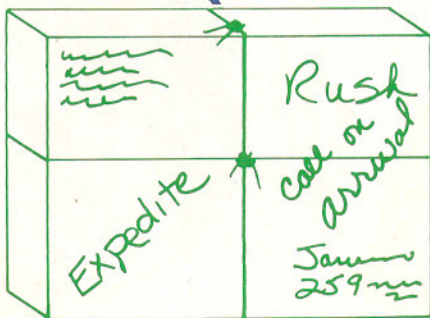 Rush
call on
arrival
Expedite
259